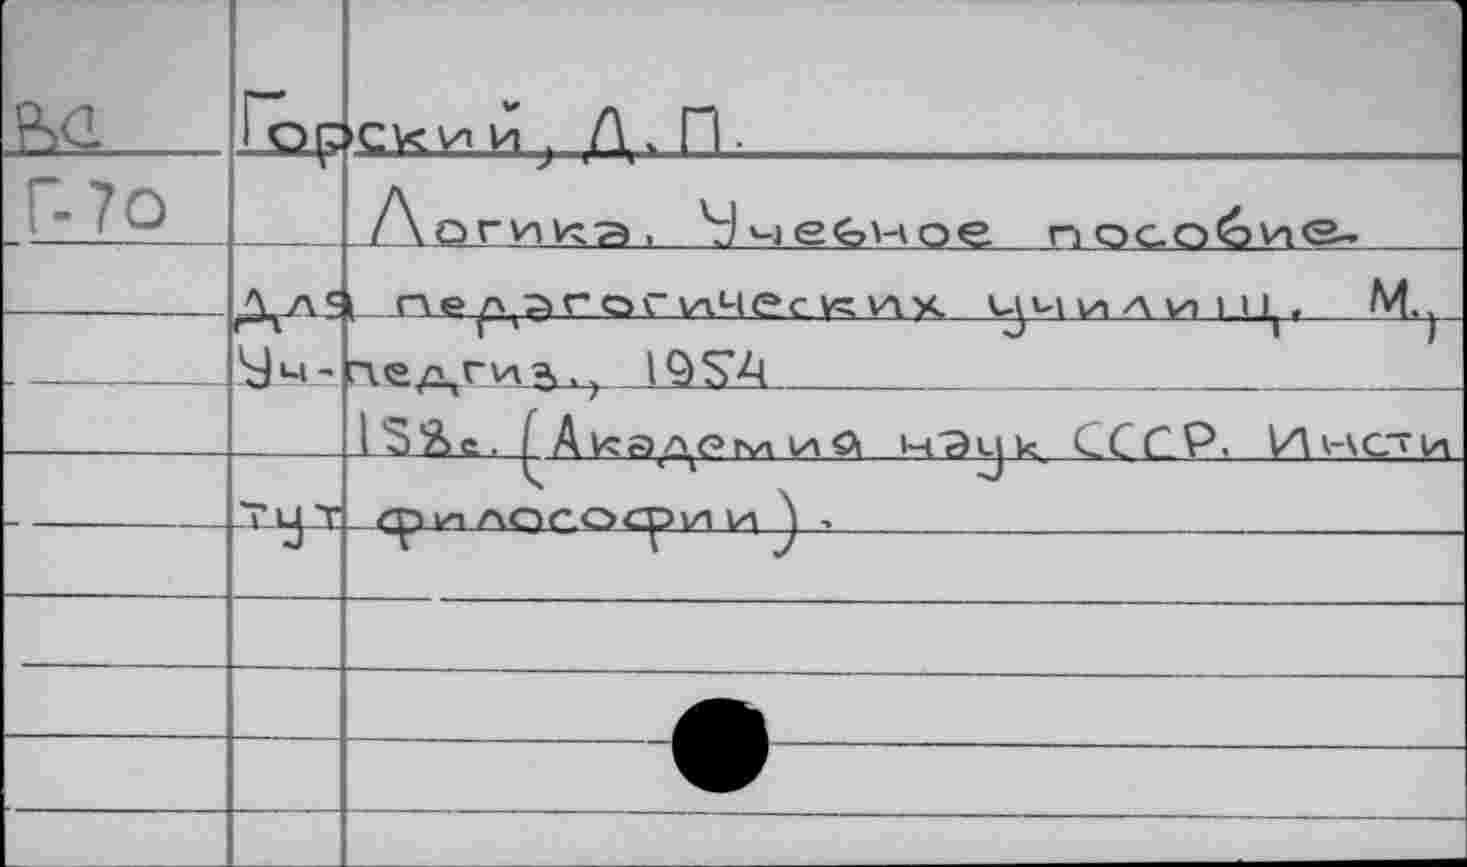 Ва Горский, Д. П.
Г-70 Логика. Учебное пособие
для педагогических училищ. М.,
Уч-педгиз., 1954
152с. (Академия наук СССР. Инсти
тут философии).